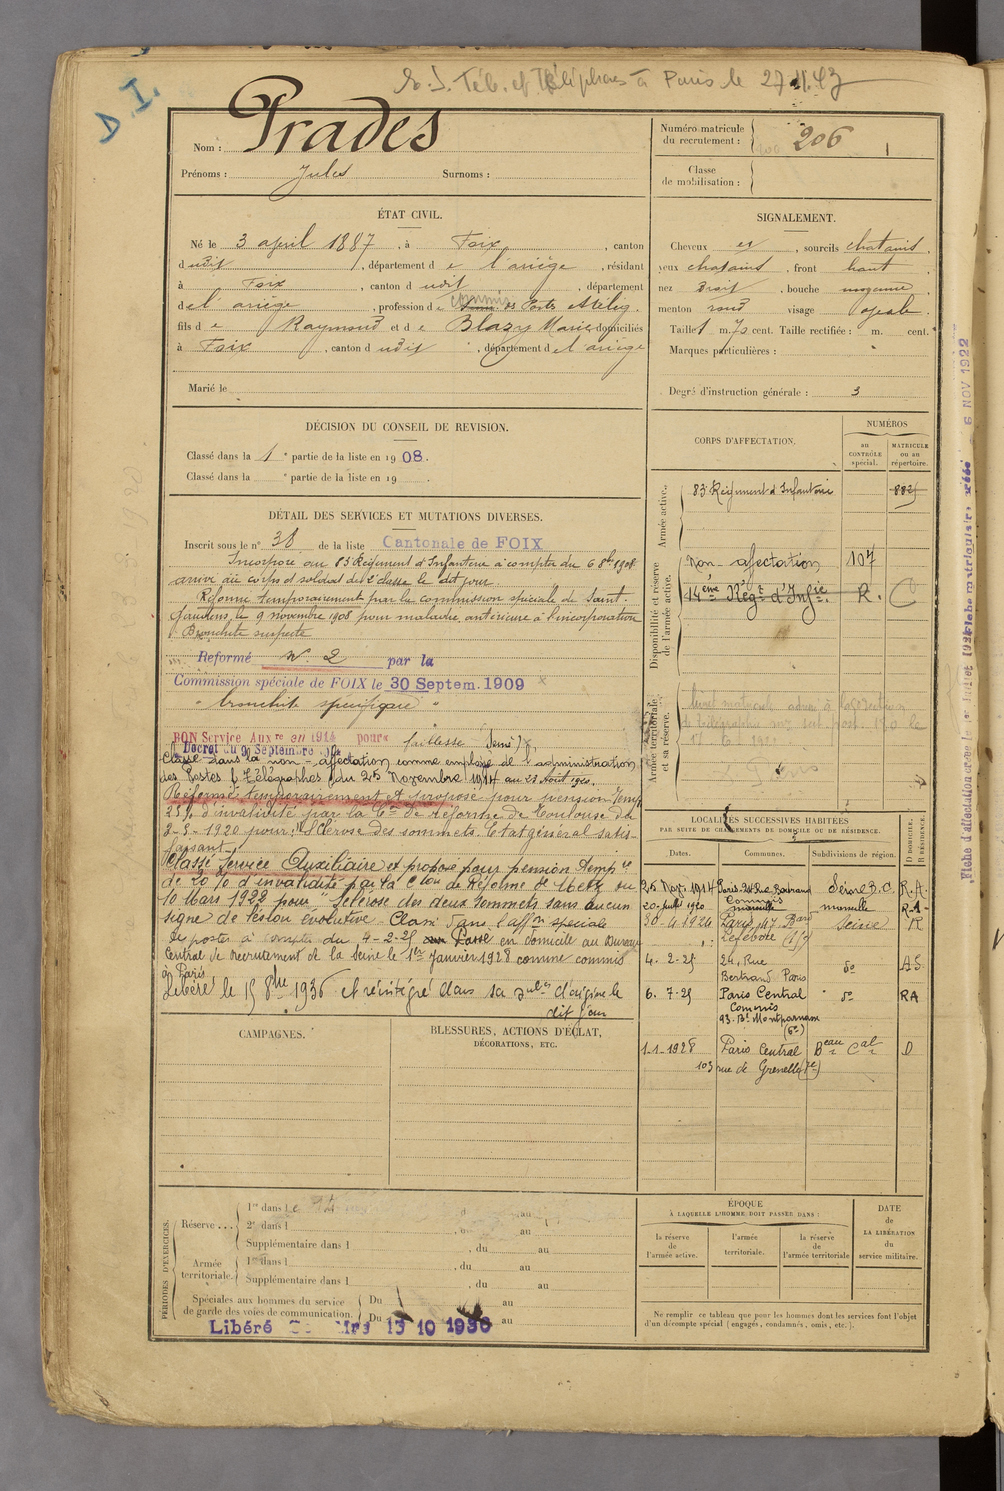 D. I.
Téléphones à Paris le 27.11.43
Nom : Prades
Prénoms : Jules Surnoms :
Numéro matricule du recrutement : 206
Classe de mobilisation :
ÉTAT CIVIL.
Né le 3 april 1887, à Foix, canton
d udit, département d e l'ariège, résidant
à Foix, canton d udit, département
d e l'ariège, profession d e Commis des Postes et télég.
fils d e Raymond et d e Blazy Marie domiciliés
à Foix, canton d udit, département d e l'ariège
Marié le
SIGNALEMENT.
Cheveux et, sourcils chatains.
yeux chatains, front haut
nez droit, bouche moyenne
menton rond visage ovale.
Taille 1 m. 70 cent. Taille rectifiée : m. cent.
Marques particulières :
Degré d'instruction générale : 3
DÉCISION DU CONSEIL DE REVISION.
Classé dans la 1e partie de la liste en 1908.
Classé dans la e partie de la liste en 19
DÉTAIL DES SERVICES ET MUTATIONS DIVERSES.
Inscrit sous le n° 38 de la liste Cantonale de FOIX
Incorporé au 83 Régiment d'Infanterie à compter du 6 8bre 1908
arrivé au corps et soldat de 2e classe le dit jour.
Réformé temporairement par la commission spéciale de Saint
Gaudens, le 9 novembre 1908 pour maladie antérieure à l'incorporation
Bronchite suspecte
Réformé n° 2 par la
Commission spéciale de FOIX le 30 Septem. 1909
"bronchite spécifique"
BON Service Auxre en 1914 pour faiblesse
Décret du 9 Septembre 1914
Classé dans la non-affectation comme employé de l'administration
des Postes & Télégraphes du 25 Novembre 1914 au 22 Août 1920.
Réformé temporairement et proposé pour pension temp
25% d'invalidité par la Con de réforme de Toulouse du
2-3-1920 pour : Sclérose des sommets. Etat général satis-
faisant
Classé Service Auxiliaire et proposé pour pension tempre
de 20% d'invalidité par la Cion de Réforme de Metz du
10 Mars 1922 pour "Sclérose des deux sommets sans aucun
signe de lésion évolutive. Classé dans l'affon spéciale
des postes à compter du 4-2-25 Passé en domicile au Bureau
Central de recrutement de la Seine le 1er Janvier 1928 comme commis
à Paris
Libéré le 15 8bre 1936 et réintégré dans sa subon d'origine le
dit jour
CORPS D'AFFECTATION.
NUMÉROS
au CONTRÔLE spécial.
MATRICULE ou au répertoire.
Armée active.
83 Régiment d'Infanterie 882
Disponibilité et réserve de l'armée active.
Non-affectation 107
14ème Régt d'Infie. R.
Armée territoriale et sa réserve.
LOCALITÉS SUCCESSIVES HABITÉES
PAR SUITE DE CHANGEMENTS DE DOMICILE OU DE RÉSIDENCE.
Dates. Communes. Subdivisions de région. D DOMICILE. R RÉSIDENCE.
25 Nov. 1914 Paris 24 Rue Bertrand Seine B.C. R.A.
20 juillet 1920 Commis marseille marseille R.A-
30-4 1924 Paris, 47 Bard Lefebvre (15e) Seine R
4-2-25 24, Rue Bertrand Paris do AS.
6.7-25 Paris Central Commis 93 Bd Montparnasse (6e) do RA
1-1-1928 Paris Central Beau Cal D
103 rue de Grenelle (7e)
CAMPAGNES.
BLESSURES, ACTIONS D'ÉCLAT,
DÉCORATIONS, ETC.
PÉRIODES D'EXERCICES.
Réserve ... 1re dans le 14 , du au
2e dans l , du au
Supplémentaire dans l , du au
Armée territoriale. 1re dans l , du au
Supplémentaire dans l , du au
Spéciales aux hommes du service de garde des voies de communication. Du au
Du au
Libéré 15 10 1936
ÉPOQUE
À LAQUELLE L'HOMME DOIT PASSER DANS :
la réserve de l'armée active.
l'armée territoriale.
la réserve de l'armée territoriale
DATE de LA LIBÉRATION du service militaire.
Ne remplir ce tableau que pour les hommes dont les services font l'objet
d'un décompte spécial (engagés, condamnés, omis, etc.).
6 NOV 1922